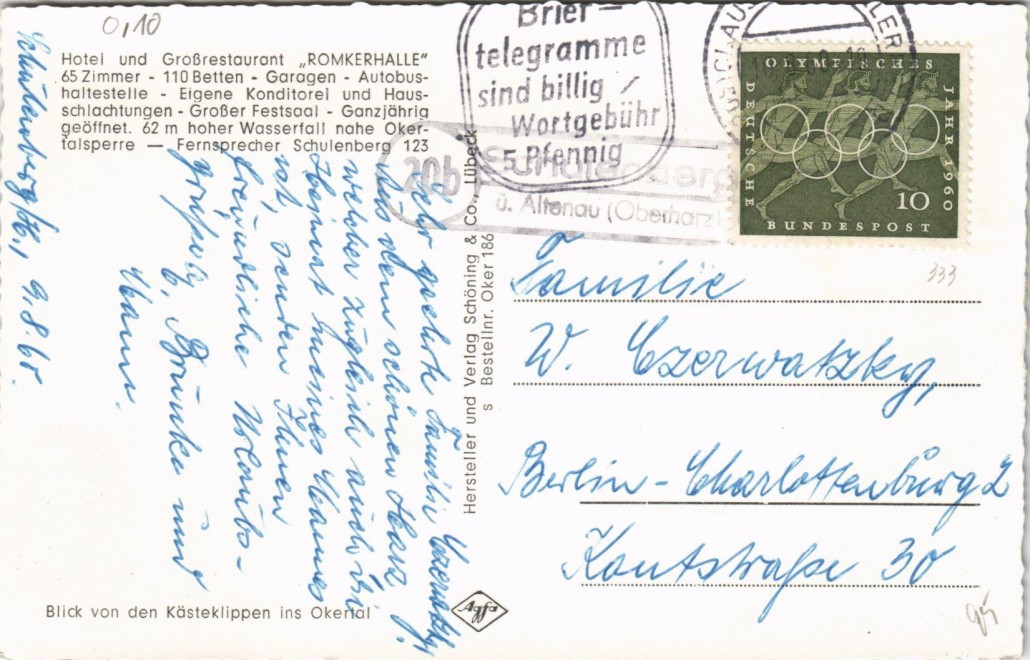 0,10
Hotel und Großrestaurant „ROMKERHALLE"
65 Zimmer - 110 Betten - Garagen - Autobus-
haltestelle - Eigene Konditorei und Haus-
schlachtungen - Großer Festsaal - Ganzjährig
geöffnet. 62 m hoher Wasserfall nahe Oker-
talsperre — Fernsprecher Schulenberg 123
Schulenberg/H, 9.8.60.
Sehr geehrte Familie Czerwatzky,
Aus dem schönen Harz,
welcher zugleich auch die
Heimat meines Mannes
ist, senden Ihnen
freundliche Urlaubs-
grüße
G. Brünke und
Mann.
Blick von den Kästeklippen ins Okertal
Hersteller und Verlag Schöning & Co., Lübeck
s Bestellnr. Oker 186
Agfa
Brief-
telegramme
sind billig
Wortgebühr
5 Pfennig
20b Schulenberg
ü. Altenau (Oberharz)
OLYMPISCHES
JAHR 1960
DEUTSCHE
BUNDESPOST
10
333
Familie
W. Czerwatzky,
Berlin-Charlottenburg 2
Kantstraße 30